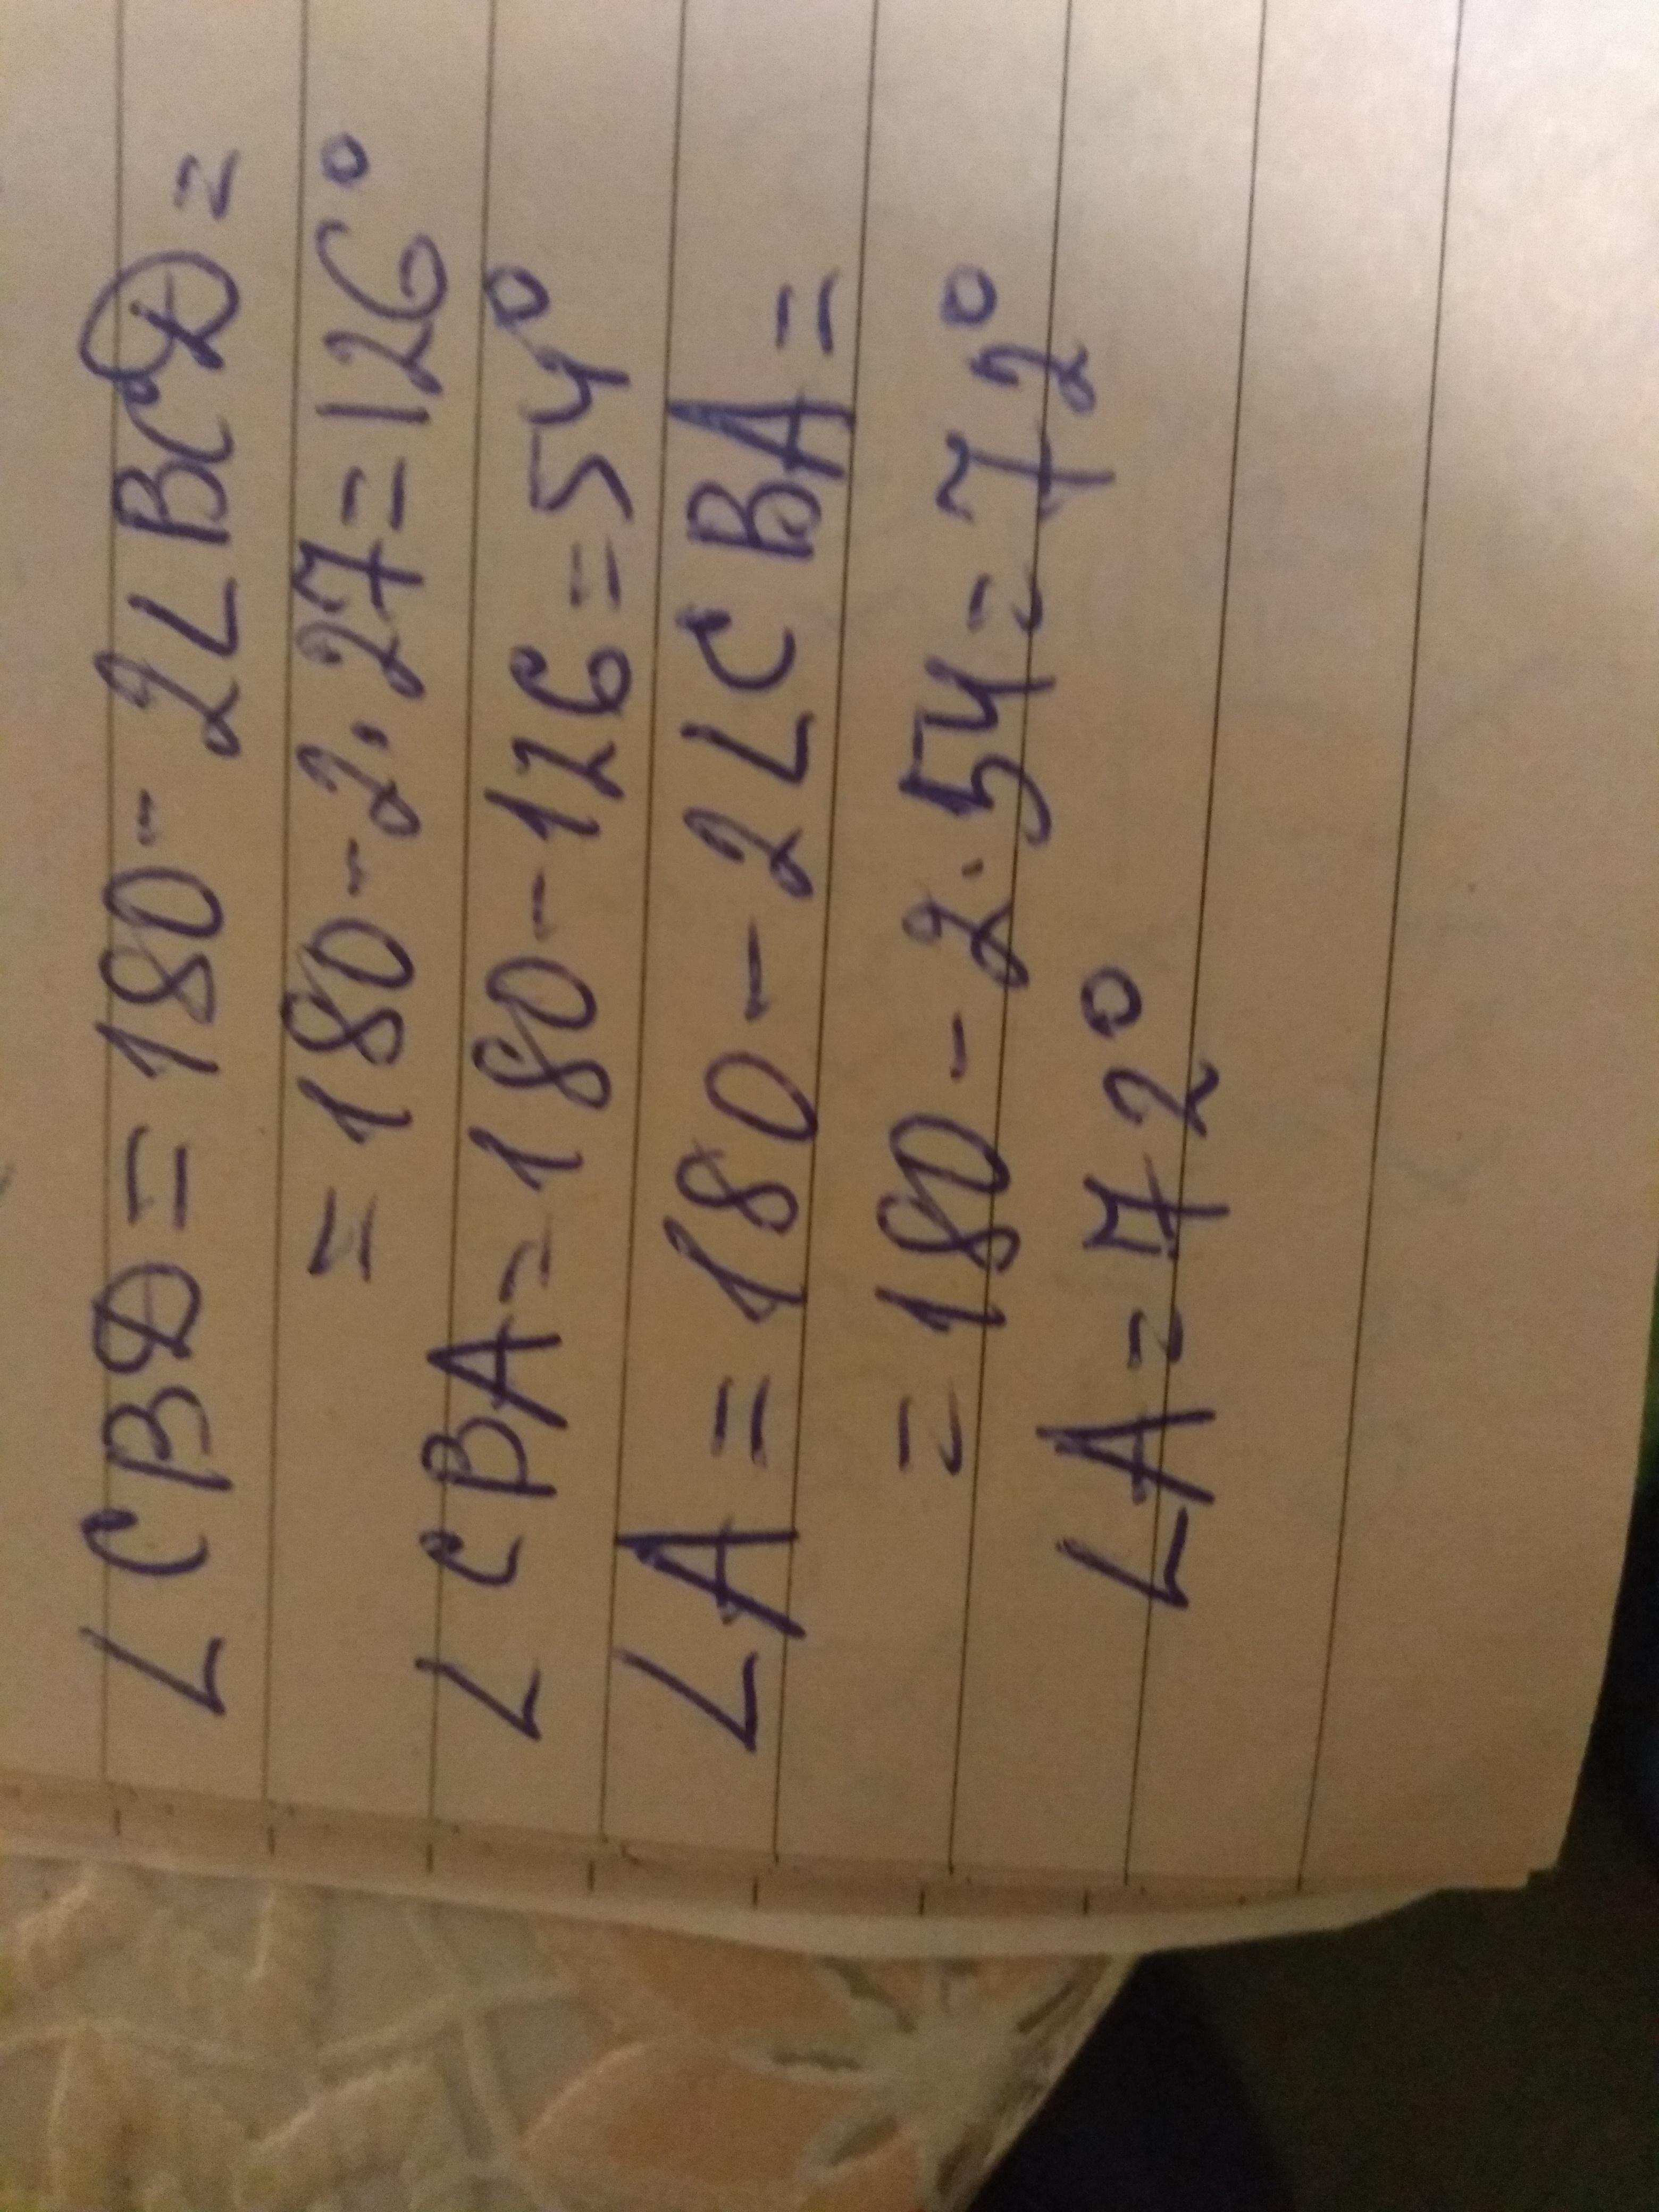 ∠CBD=180-2∠BCD=
=180-2·27=126°
∠CBA=180-126=54°
∠A=180-2∠CBA=
=180-2·54=72°
∠A=72°